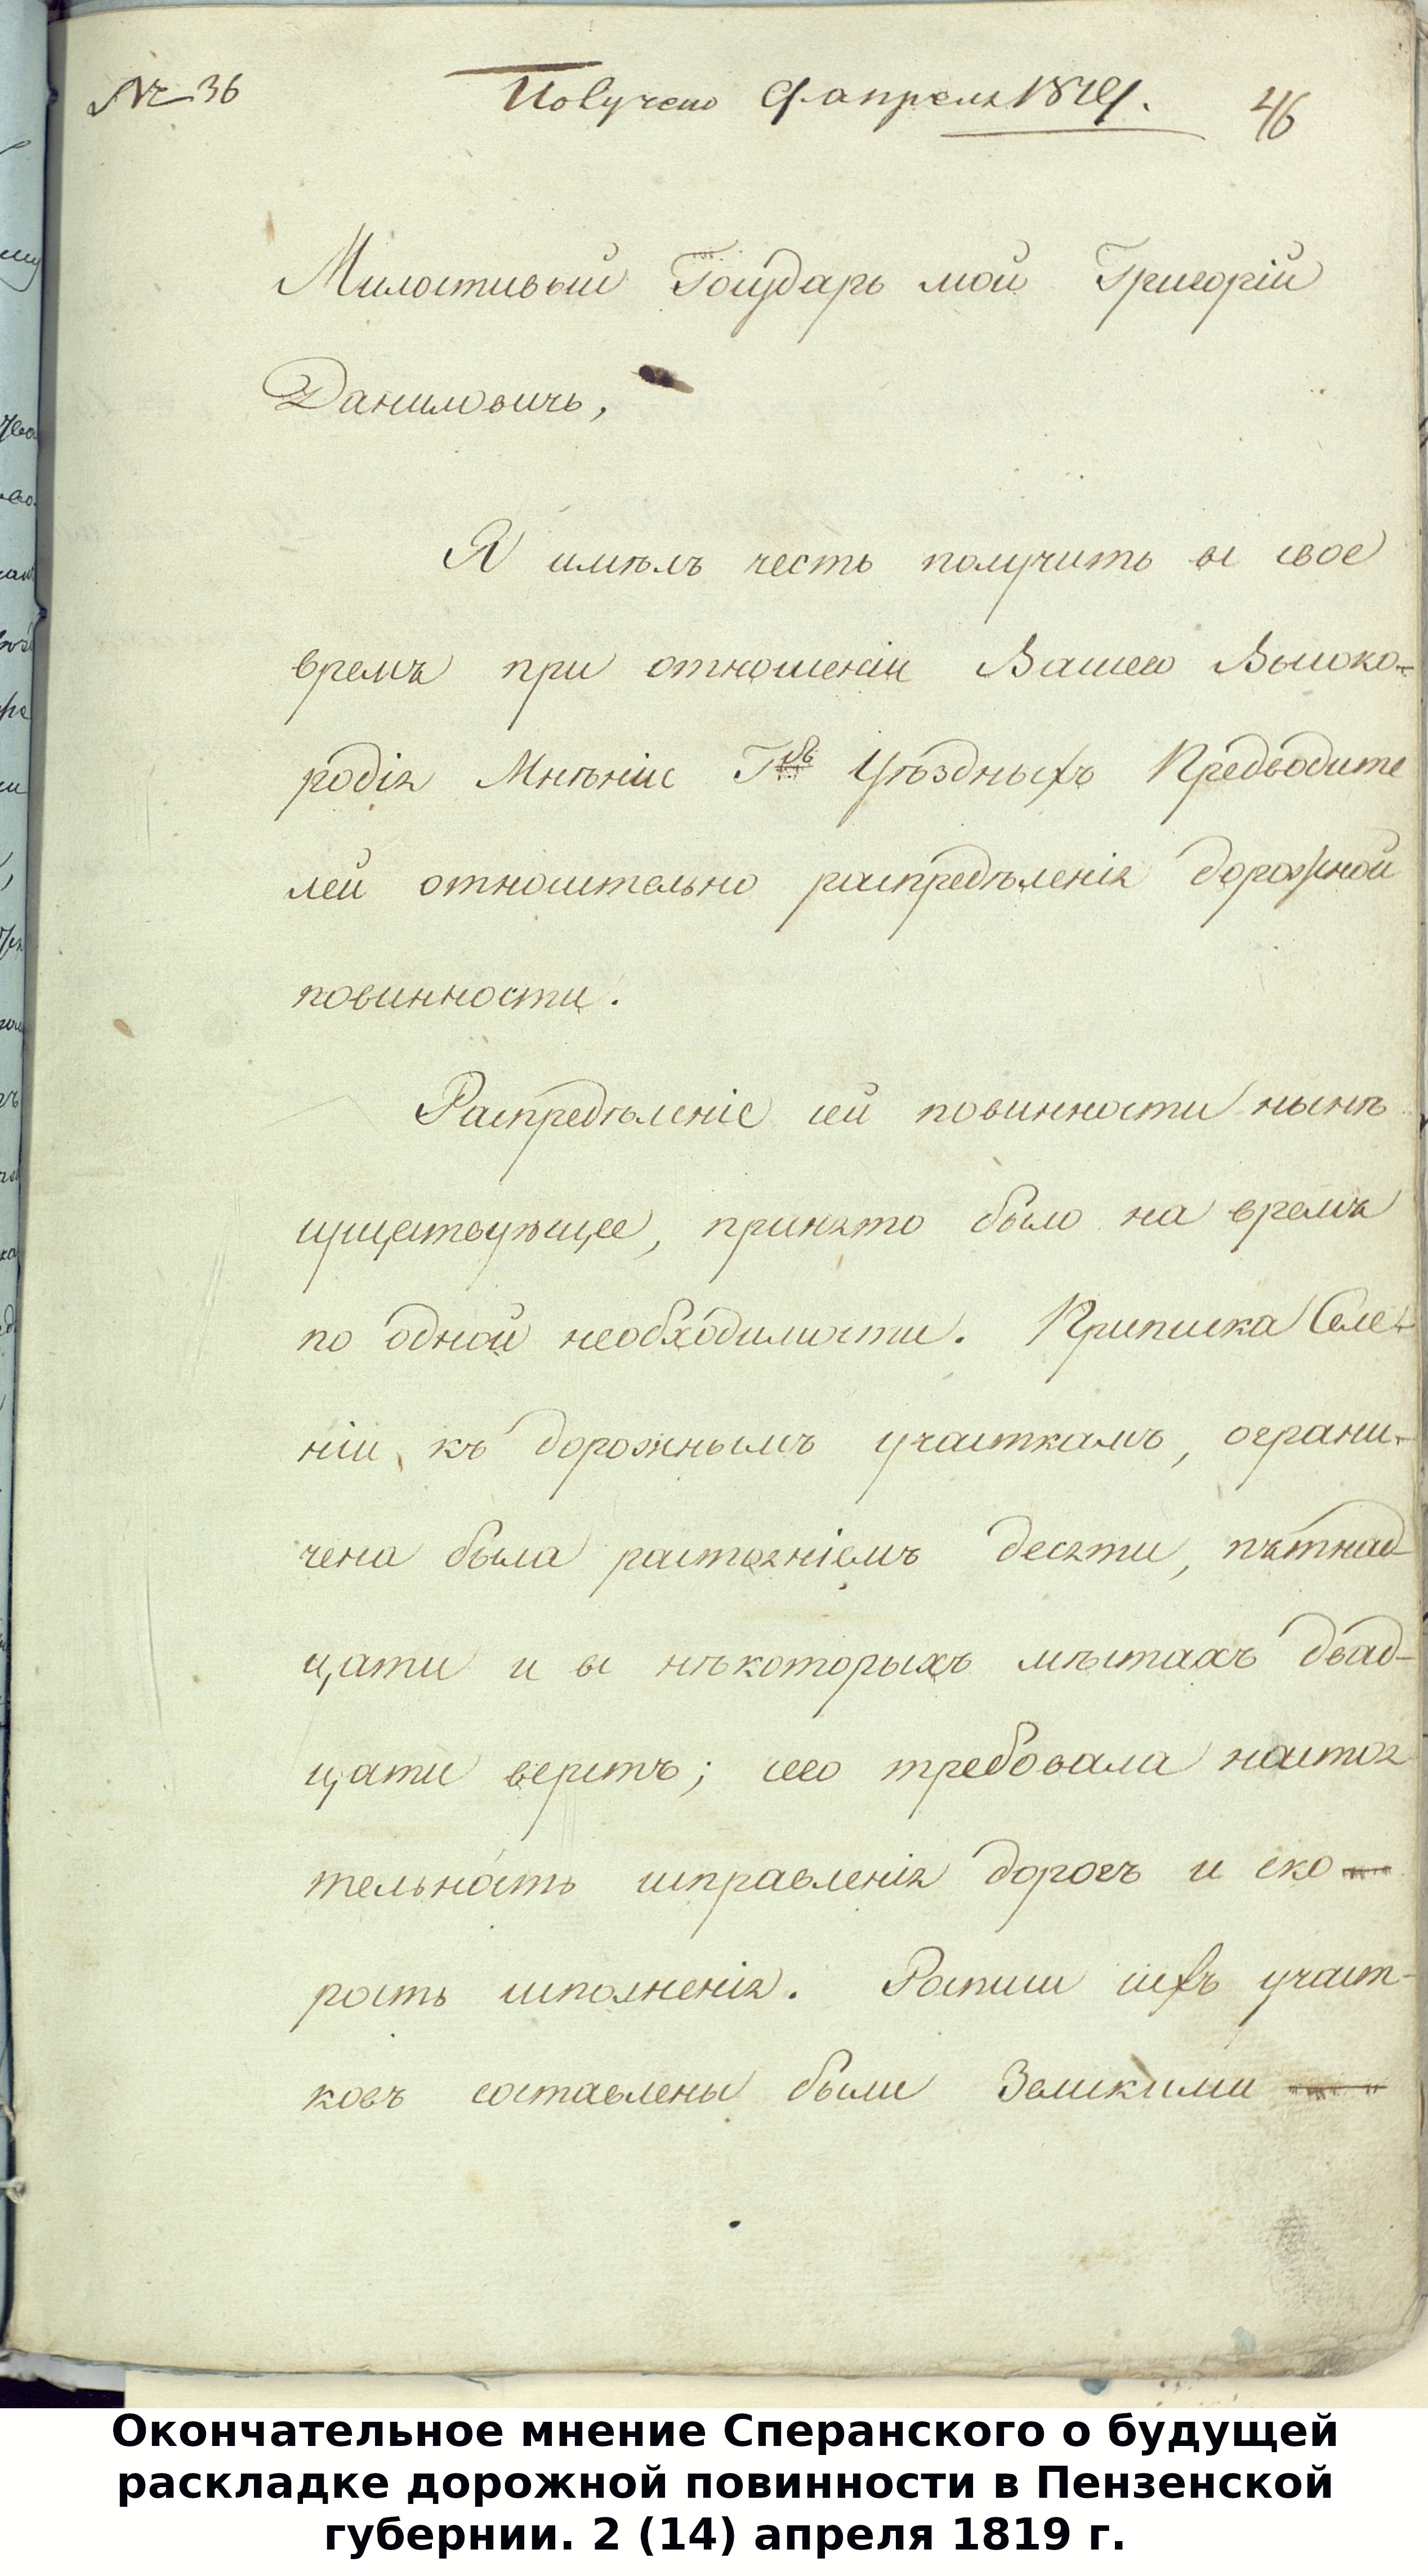 № 36
Получено 9 апреля 1819.
46
Милостивый Государь мой Григорій
Даниловичь,
Я имѣлъ честь получить въ свое
время при отношеніи Вашего Высоко-
родія Мнѣніе Г.хъ Уѣздныхъ Предводите
лей относительно распредѣленія дорожной
повинности.
Распредѣленіе сей повинности нынѣ
существующее, принято было на время
по одной необходимости. Приписка Селе-
ніи къ дорожнымъ участкамъ, ограни-
чена была растояніемъ десяти, пятнад-
цати и въ нѣкоторыхъ мѣстахъ двад-
цати верстъ; сего требовала настоя
тельность исправленія дорогъ и ско
рость исполненія. Росписи сихъ участ-
ковъ составлены были Земскими
Окончательное мнение Сперанского о будущей
раскладке дорожной повинности в Пензенской
губернии. 2 (14) апреля 1819 г.